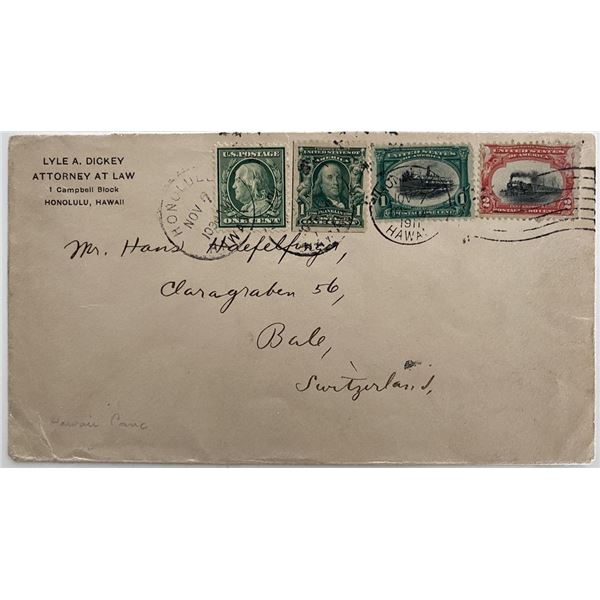 LYLE A. DICKEY
ATTORNEY AT LAW
1 Campbell Block
HONOLULU, HAWAII
U.S. POSTAGE
ONE CENT
UNITED STATES OF AMERICA
FRANKLIN
ONE CENT
UNITED STATES
OF AMERICA
1 POSTAGE ONE CENT 1
UNITED STATES
OF AMERICA
2 POSTAGE TWO CENTS 2
HONOLULU
NOV 7
1030
NOV 7
1911
HAWAII
Mr. Hans Haefelfinger,
Claragraben 56,
Bale,
Switzerland,
Hawaii Panc